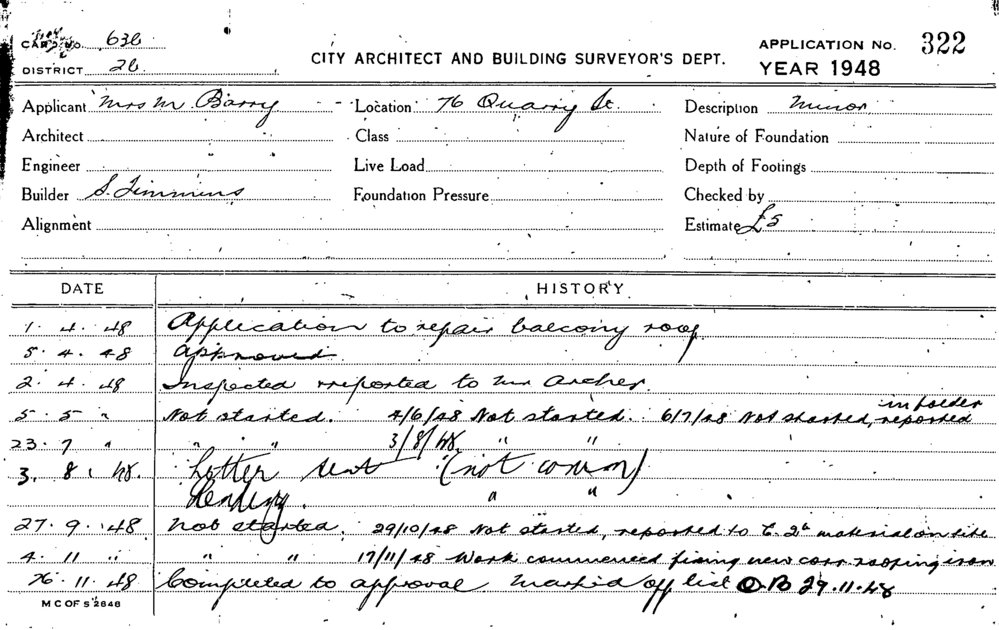 CARD No. 636
DISTRICT 26
CITY ARCHITECT AND BUILDING SURVEYOR'S DEPT.
APPLICATION No. 322
YEAR 1948
Applicant Mrs M. Barry Location 76 Quarry St. Description Minor
Architect Class Nature of Foundation
Engineer Live Load Depth of Footings
Builder S. Timmins Foundation Pressure Checked by
Alignment Estimate £5
DATE HISTORY
1. 4. 48 Application to repair balcony roof
5. 4. 48 Approved.
2. 4. 48 Inspected & reported to Mr Archer.
in folder
5. 5 " Not started. 4/6/48 Not started. 6/7/48 Not started, reported
23. 7 " " " 3/8/48. " "
3. 8. 48. Letter sent (not comm)
" "
27. 9. 48 Not started. 29/10/48 Not started, reported to material on site
4. 11 " " " 17/11/48 Work commenced fixing new corr. roofing iron
26. 11. 48 Completed to approval Marked off list O.B 29.11.48
M C OF S 2848